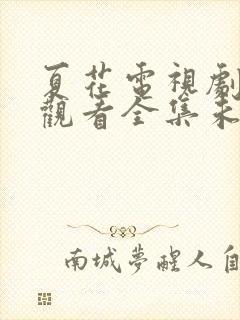 夏花電視劇
觀看全集未
南城夢醒人自